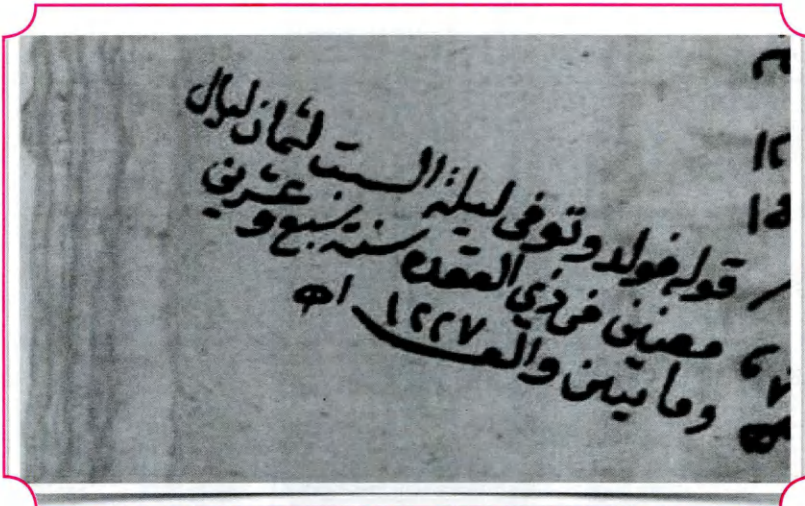 قوله فولد وتوفى ليلة السبت لثمان ليال
مضين فى ذي القعده سنة سبع وعشرين
ومايتين والف ١٢٢٧ اه